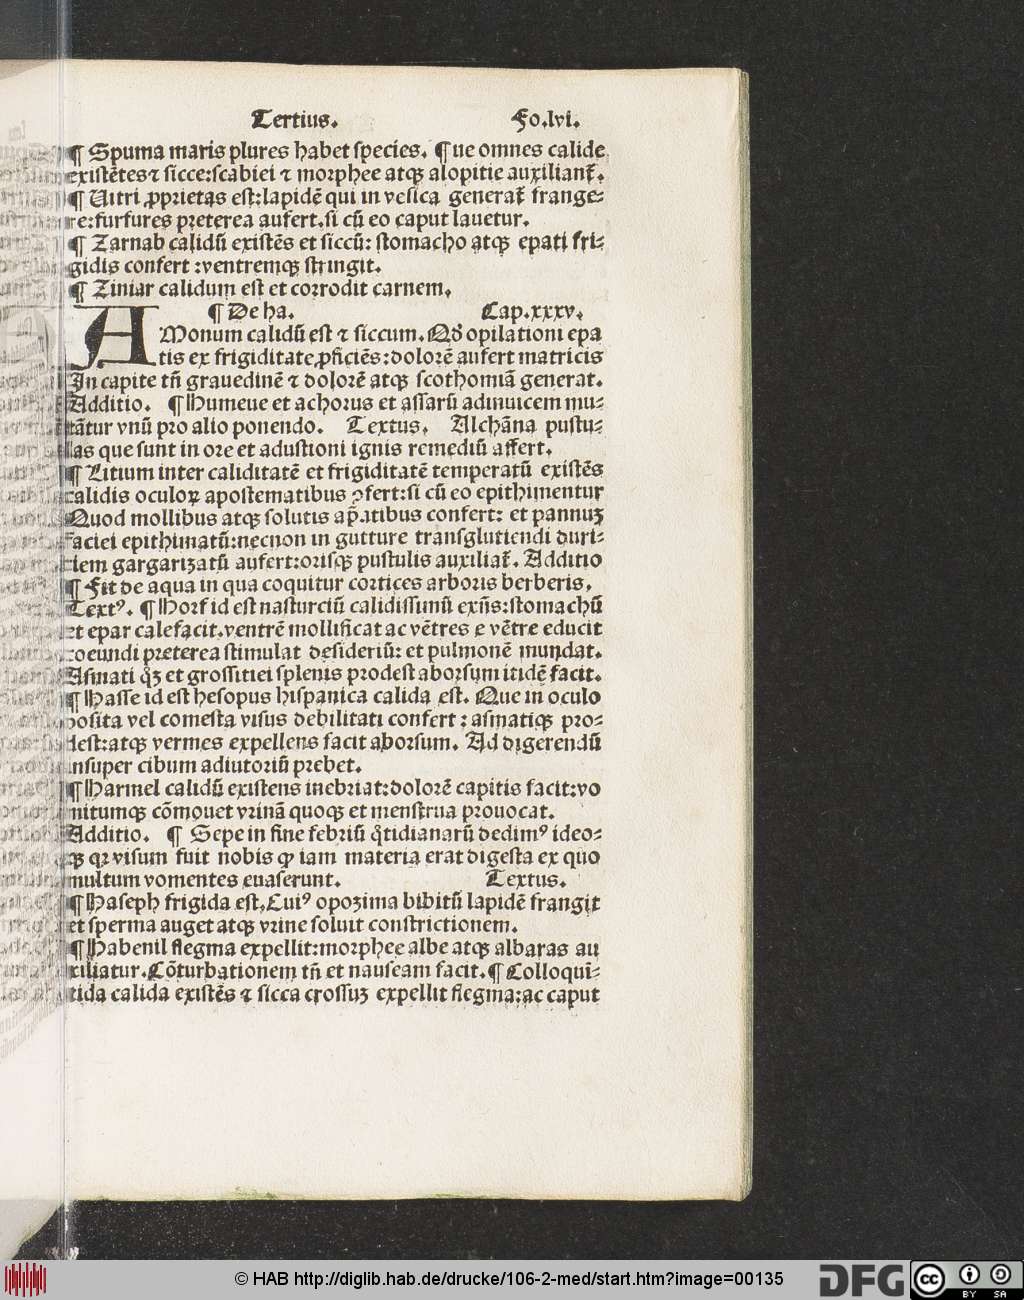 Tertius. Fo.lvi.
¶ Spuma maris plures habet species. ¶ ue omnes calide
existẽtes ⁊ sicce:scabiei ⁊ morphee atqꝫ alopitie auxiliant᷑.
¶ Uitri ꝓprietas est:lapidẽ qui in vesica generat᷑ frange-
re:furfures preterea aufert.si cũ eo caput lauetur.
¶ Zarnab calidũ existẽs et siccũ: stomacho atqꝫ epati fri-
gidis confert :ventremqꝫ stringit.
¶ Ziniar calidum est et corrodit carnem.
¶ De ha. Cap.xxxv.
AMonum calidũ est ⁊ siccum. Qđ opilationi epa
tis ex frigiditate ꝓficiẽs:dolorẽ aufert matricis
In capite tñ grauedinẽ ⁊ dolorẽ atqꝫ scothomiã generat.
Additio. ¶ Humeue et achorus et assarũ adinuicem mu-
tãtur vnũ pro alio ponendo. Textus. Alchãna pustu-
las que sunt in ore et adustioni ignis remediũ affert.
¶ Litium inter caliditatẽ et frigiditatẽ temperatũ existẽs
calidis oculoꝝ apostematibus ꝯfert:si cũ eo epithimentur
Quod mollibus atqꝫ solutis ap̃atibus confert: et pannuꝫ
faciei epithimatũ:necnon in gutture transglutiendi duri-
tiem gargarizatũ aufert:orisqꝫ pustulis auxiliat᷑. Additio
¶ Fit de aqua in qua coquitur cortices arboris berberis.
Textꝰ. ¶ Horf id est nasturciũ calidissimũ exñs:stomachũ
et epar calefacit.ventrẽ mollificat ac vẽtres e vẽtre educit
coeundi preterea stimulat desideriũ: et pulmonẽ mundat.
Asmati q̊ꝫ et grossitiei splenis prodest aborsum itidẽ facit.
¶ Hasse id est hesopus hispanica calida est. Que in oculo
posita vel comesta visus debilitati confert : asmatiqꝫ pro-
dest:atqꝫ vermes expellens facit aborsum. Ad digerendũ
insuper cibum adiutoriũ prebet.
¶ Harmel calidũ existens inebriat:dolorẽ capitis facit:vo
mitumqꝫ cõmouet vrinã quoqꝫ et menstrua prouocat.
Additio. ¶ Sepe in fine febriũ q̃tidianarũ dedimꝰ ideo-
qꝫ qꝛ visum fuit nobis ꝙ iam materia erat digesta ex quo
multum vomentes euaserunt. Textus.
¶ Haseph frigida est.Cuiꝰ opozima bibitũ lapidẽ frangit
et sperma auget atqꝫ vrine soluit constrictionem.
¶ Habenil flegma expellit:morphee albe atqꝫ albaras au
xiliatur.Cõturbationem tñ et nauseam facit.¶ Colloquĩ-
tida calida existẽs ⁊ sicca crossuꝫ expellit flegma:ac caput
© HAB http://diglib.hab.de/drucke/106-2-med/start.htm?image=00135
DFG
cc
BY SA